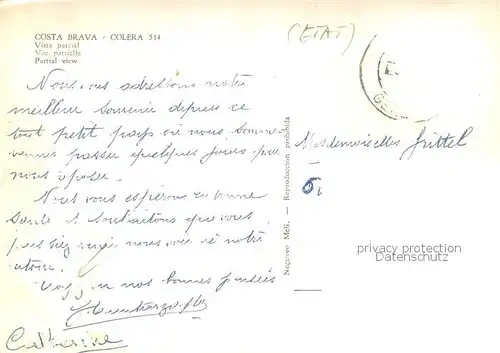 COSTA BRAVA - COLERA 514
Vista parcial
Vue partielle
Partial view
(ETAT)
Nous vous adressons notre
meilleur souvenir depuis ce
tout petit pays où nous sommes
venus passer quelques jours pour
nous reposer.
Nous vous espérons en bonne
santé et souhaitons que vous
puissiez
nous
notre
nos bonnes pensées
Catherine
Mesdemoiselles Grittel
Negativo Meli. - Reproducción prohibida
6,
privacy protection
www.ansichtskarten-center.de